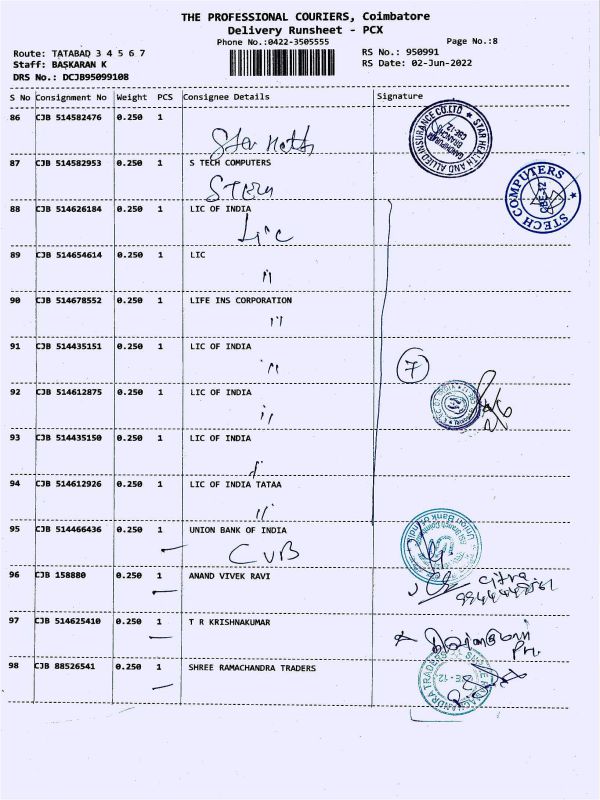 THE PROFESSIONAL COURIERS, Coimbatore
Delivery Runsheet - PCX
Phone No.:0422-3505555
Page No.:8
Route: TATABAD 3 4 5 6 7
RS No.: 950991
Staff: BASKARAN K
RS Date: 02-Jun-2022
DRS No.: DCJB95099108
S No Consignment No Weight PCS Consignee Details Signature
86 CJB 514582476 0.250 1
STAR HEALTH AND ALLIED INSURANCE CO.LTD
BRANCH
CBE-12
87 CJB 514582953 0.250 1 S TECH COMPUTERS
STECH COMPUTERS
CBE-12
88 CJB 514626184 0.250 1 LIC OF INDIA
Lic
89 CJB 514654614 0.250 1 LIC
90 CJB 514678552 0.250 1 LIFE INS CORPORATION
91 CJB 514435151 0.250 1 LIC OF INDIA
7
92 CJB 514612875 0.250 1 LIC OF INDIA
93 CJB 514435150 0.250 1 LIC OF INDIA
94 CJB 514612926 0.250 1 LIC OF INDIA TATAA
95 CJB 514466436 0.250 1 UNION BANK OF INDIA
Union Bank of India
CUB
96 CJB 158880 0.250 1 ANAND VIVEK RAVI
97 CJB 514625410 0.250 1 T R KRISHNAKUMAR
98 CJB 88526541 0.250 1 SHREE RAMACHANDRA TRADERS